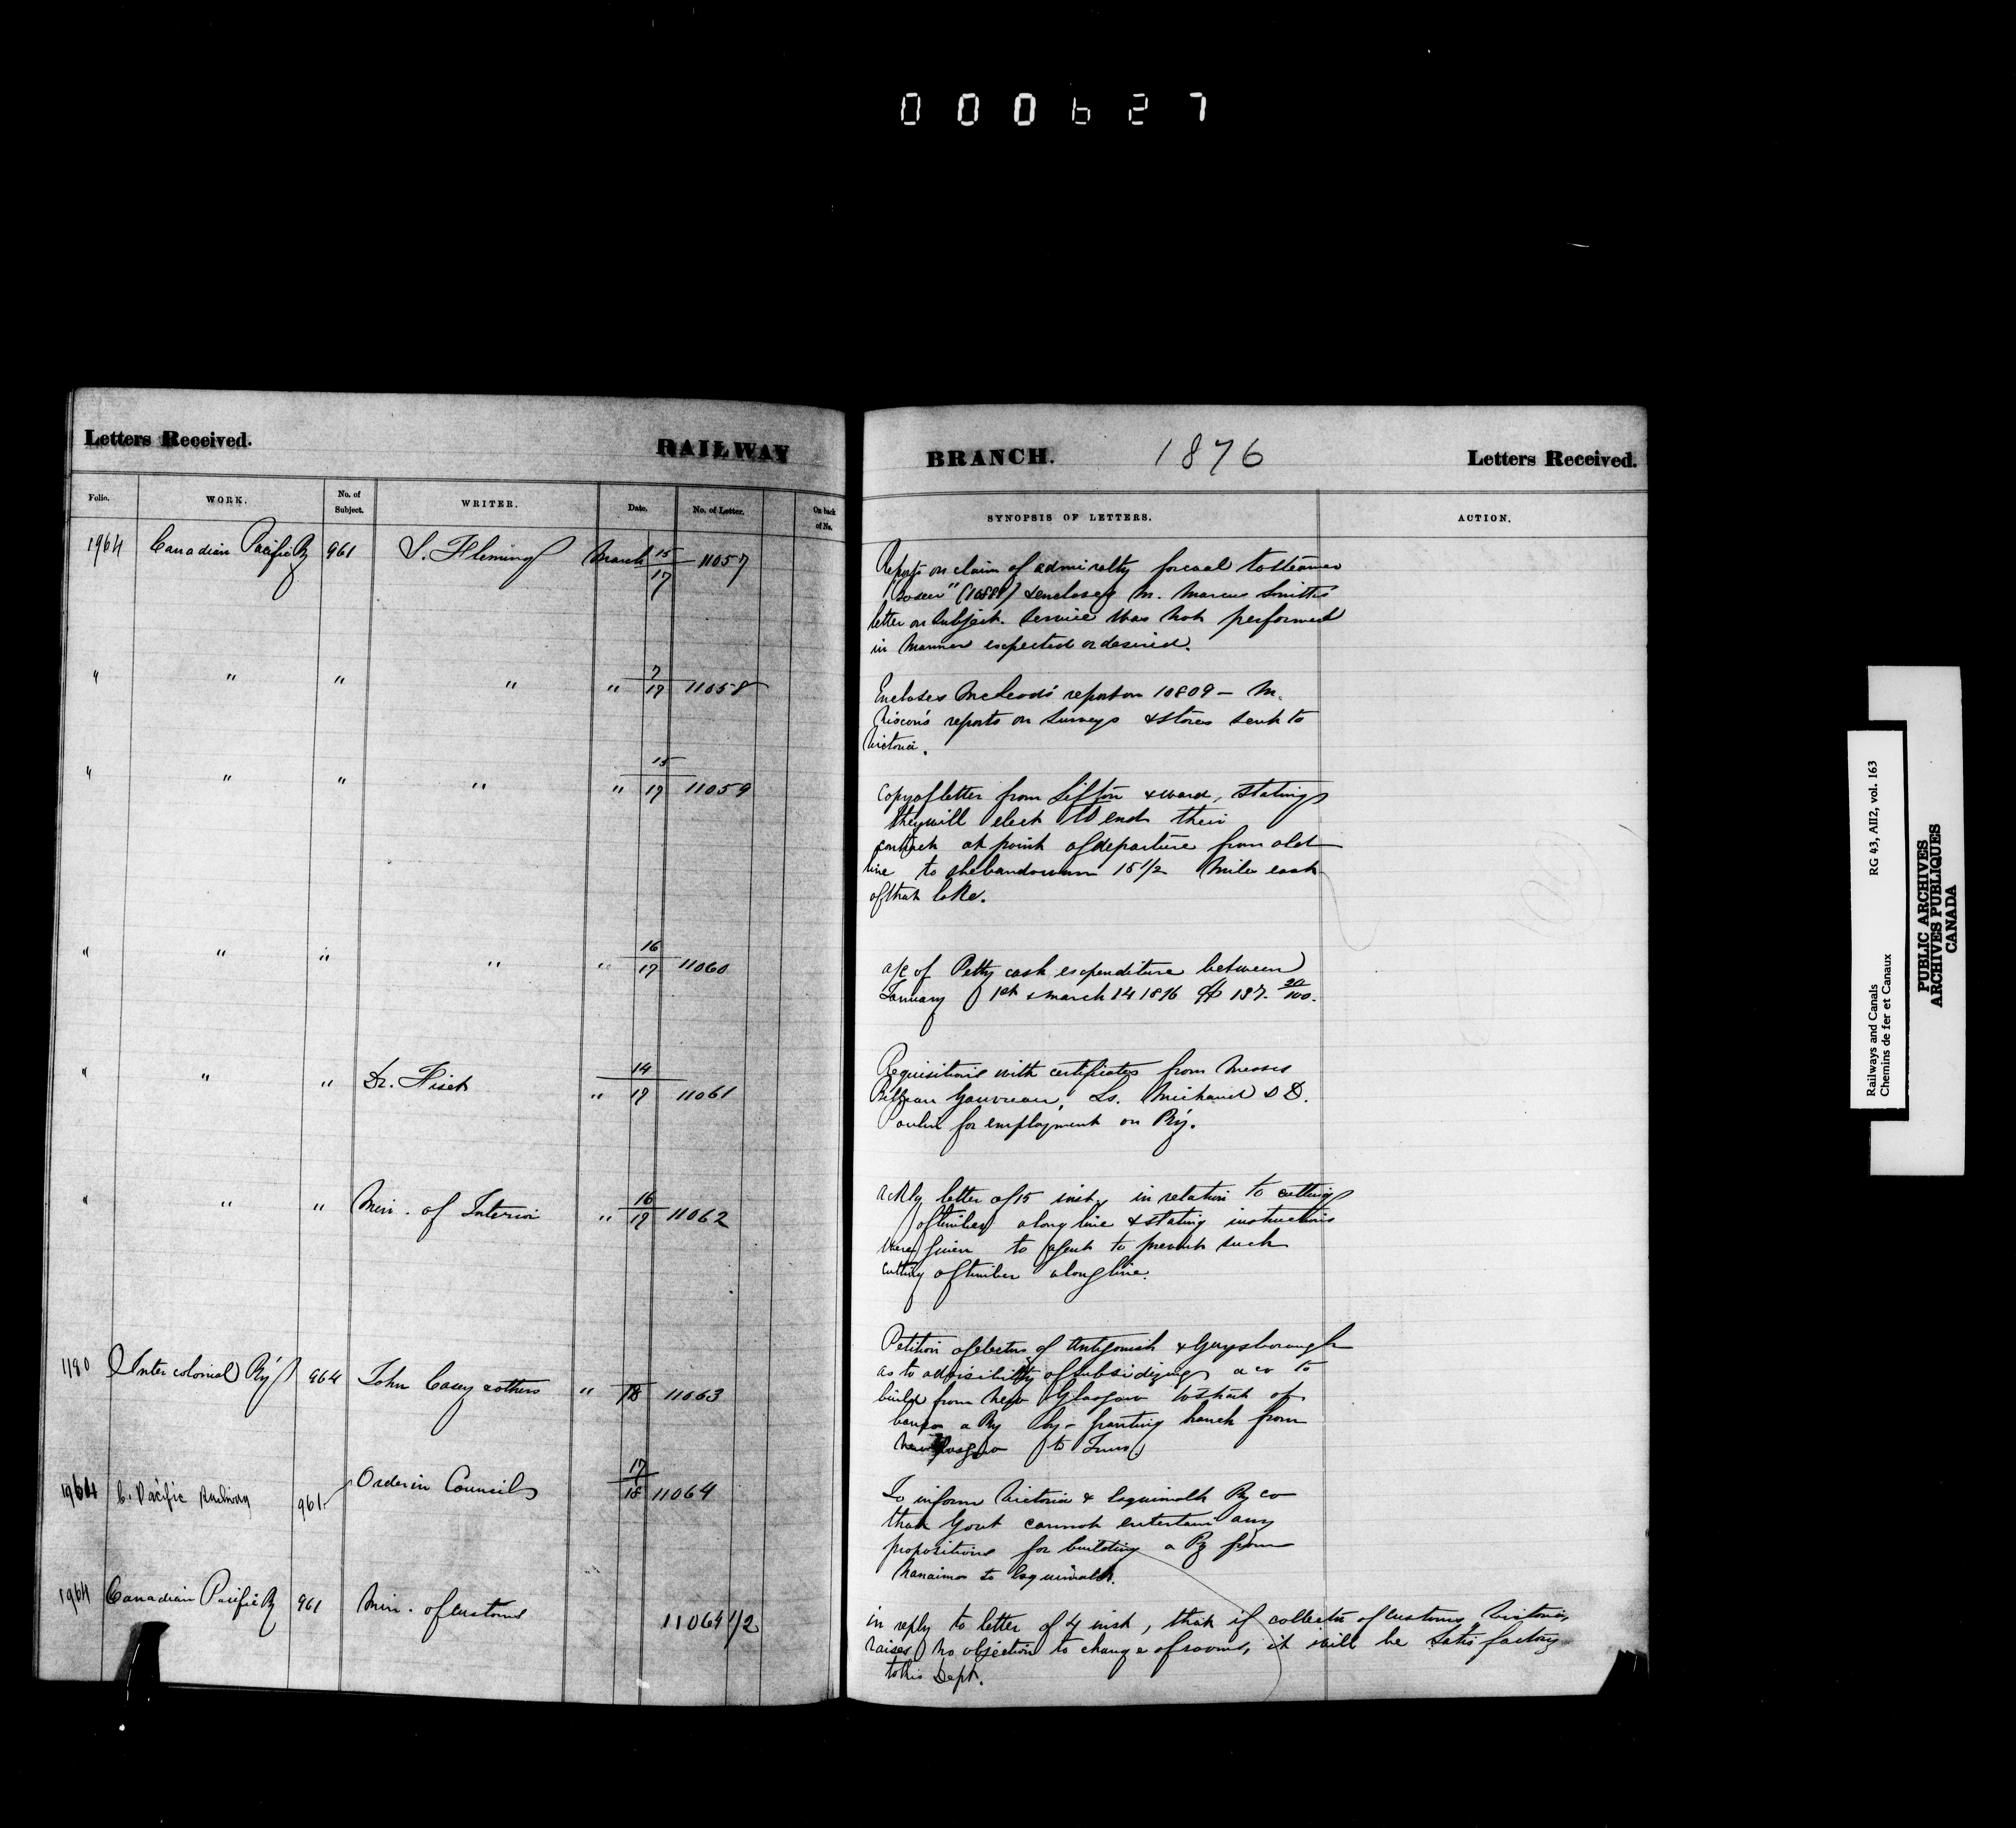 000627
Letters Received. RAILWAY BRANCH. 1876 Letters Received.
Folio. WORK. No. of Subject. WRITER. Date. No. of Letter. On back of No. SYNOPSIS OF LETTERS. ACTION.
1964 Canadian Pacific Ry 961 S. Fleming March 15/17 11057
Reports on claim of admiralty for coal to steamer
" (10881) & encloses M. Marcus Smith's
letter on subject. Service was not performed
in manner expected or desired.
" " " " " 7/17 11058
Encloses McLeod's report on 10809 – M.
reports on surveys & stores sent to
Victoria.
" " " " " 15/17 11059
Copy of letter from Sifton & Ward, stating
they will elect to end their
contract at point of departure from old
line to Shebandowan 15 1/2 miles east
of that lake.
" " " " " 16/17 11060
a/c of Petty cash expenditure between
January 1st & March 14 1876 $ 137. 20/100.
" " " Dr. Fiset " 14/17 11061
Requisitions with certificates from Messrs
Gauvreau, Ls. Michaud & D.
Poulin for employment on Ry.
" " " Min. of Interior " 16/17 11062
Ackly letter of 15 inst, in relation to cutting
of timber along line & stating instructions
were given to agent to prevent such
cutting of timber along line.
1180 Intercolonial Ry 964 John Casey & others " 18 11063
Petition of electors of Antigonish & Guysborough
as to advisibility of subsidizing a co to
build from New Glasgow to Strait of
Canso a Ry by granting branch from
New Glasgow to Truro
1964 C. Pacific Railway 961 Order in Council 17/18 11064
To inform Victoria & Esquimalt Ry co
that Govt cannot entertain any
propositions for building a Ry from
Nanaimo to Esquimalt.
1964 Canadian Pacific Ry 961 Min. of Customs 11064 1/2
in reply to letter of 4 inst, that if collector of customs, Victoria,
raises no objection to change of rooms, it will be satisfactory
to his Dept.
Railways and Canals RG 43, AII2, vol. 163
Chemins de fer et Canaux
PUBLIC ARCHIVES
ARCHIVES PUBLIQUES
CANADA